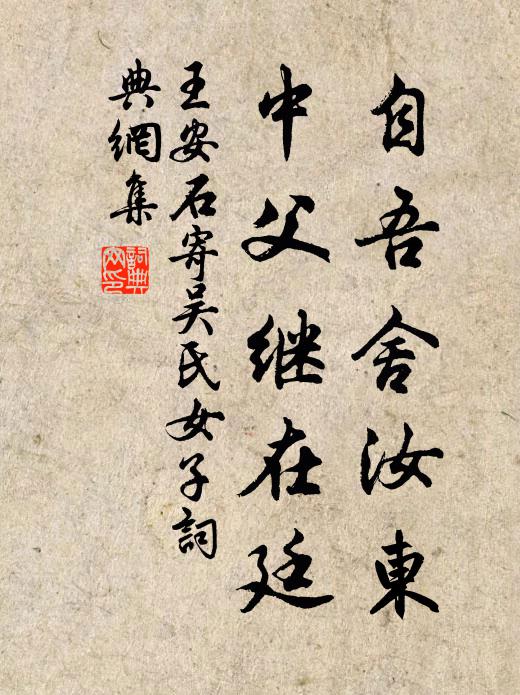 自吾舍汝東
中父继在廷
王安石寄吴氏女子詞
典網集
詞典
网印